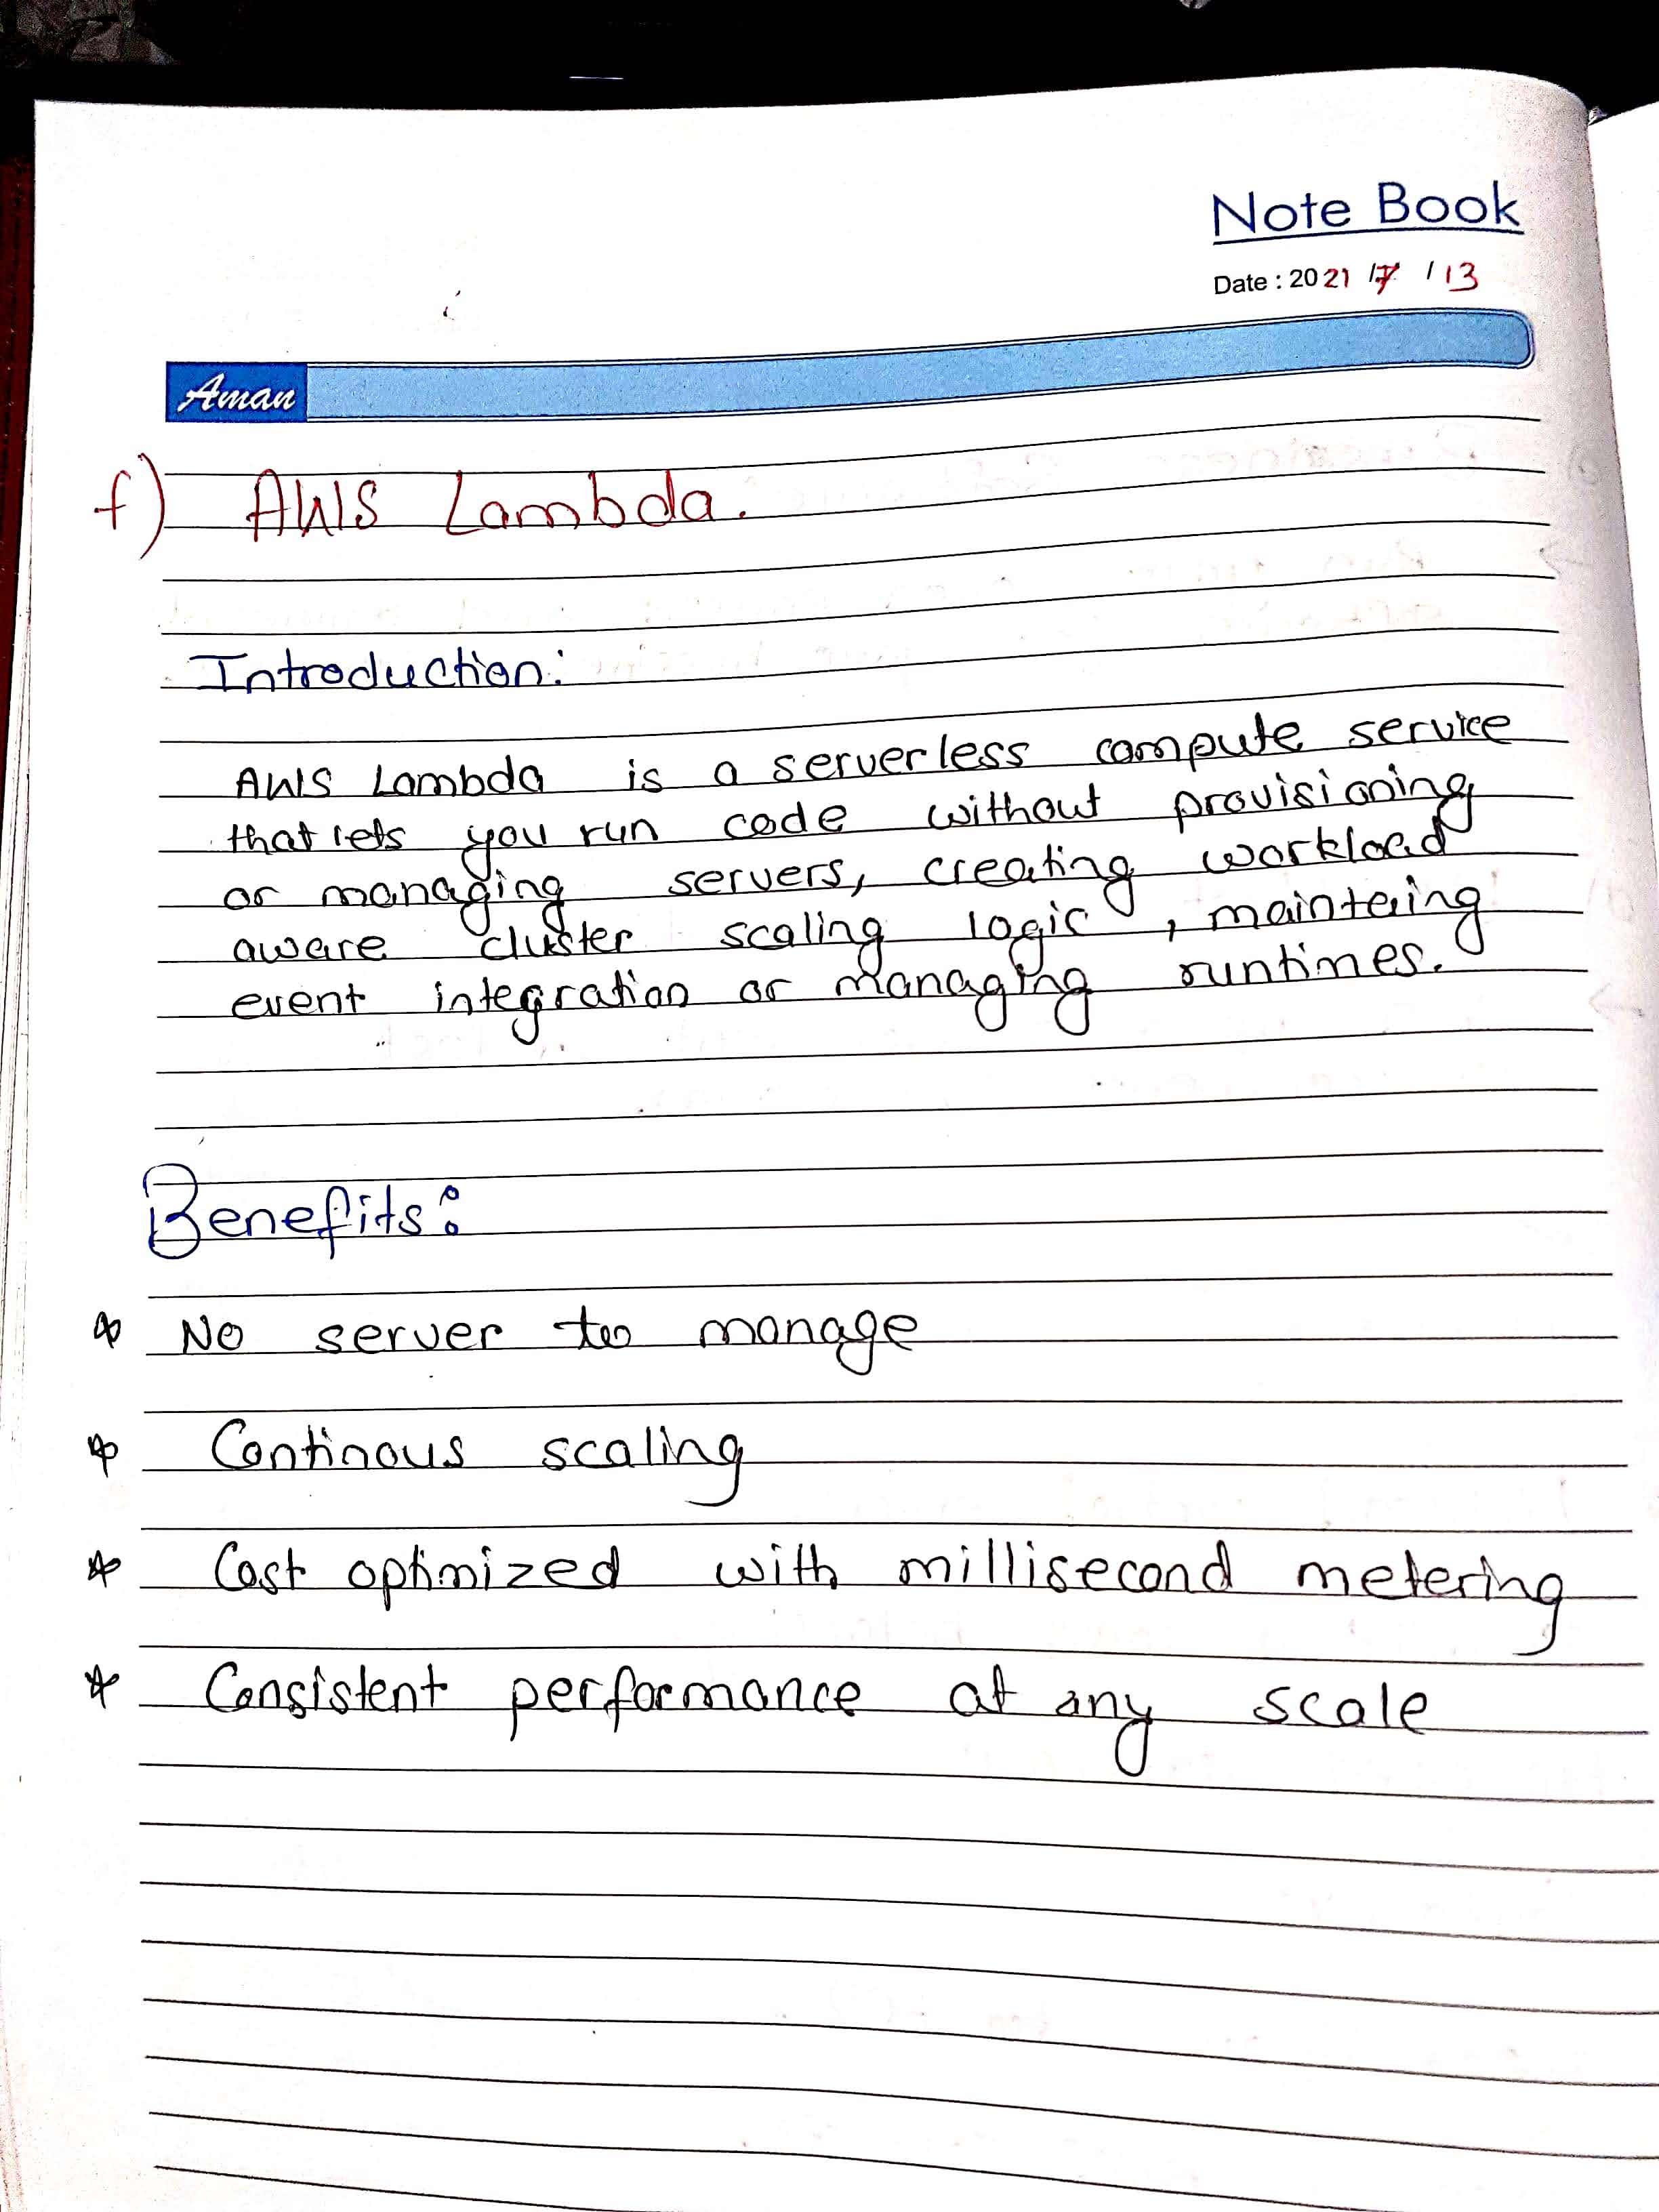 Note Book
Date : 2021 /7 /13
Aman
f) AWS Lambda.
Introduction:
AWS Lambda is a serverless compute service
that lets you run code without provisioning
or managing servers, creating workload
aware cluster scaling logic , maintaing
event integration or managing runtimes.
Benefits:
* No server to manage
* Continous scaling
* Cost optimized with millisecond metering
* Consistent performance at any scale